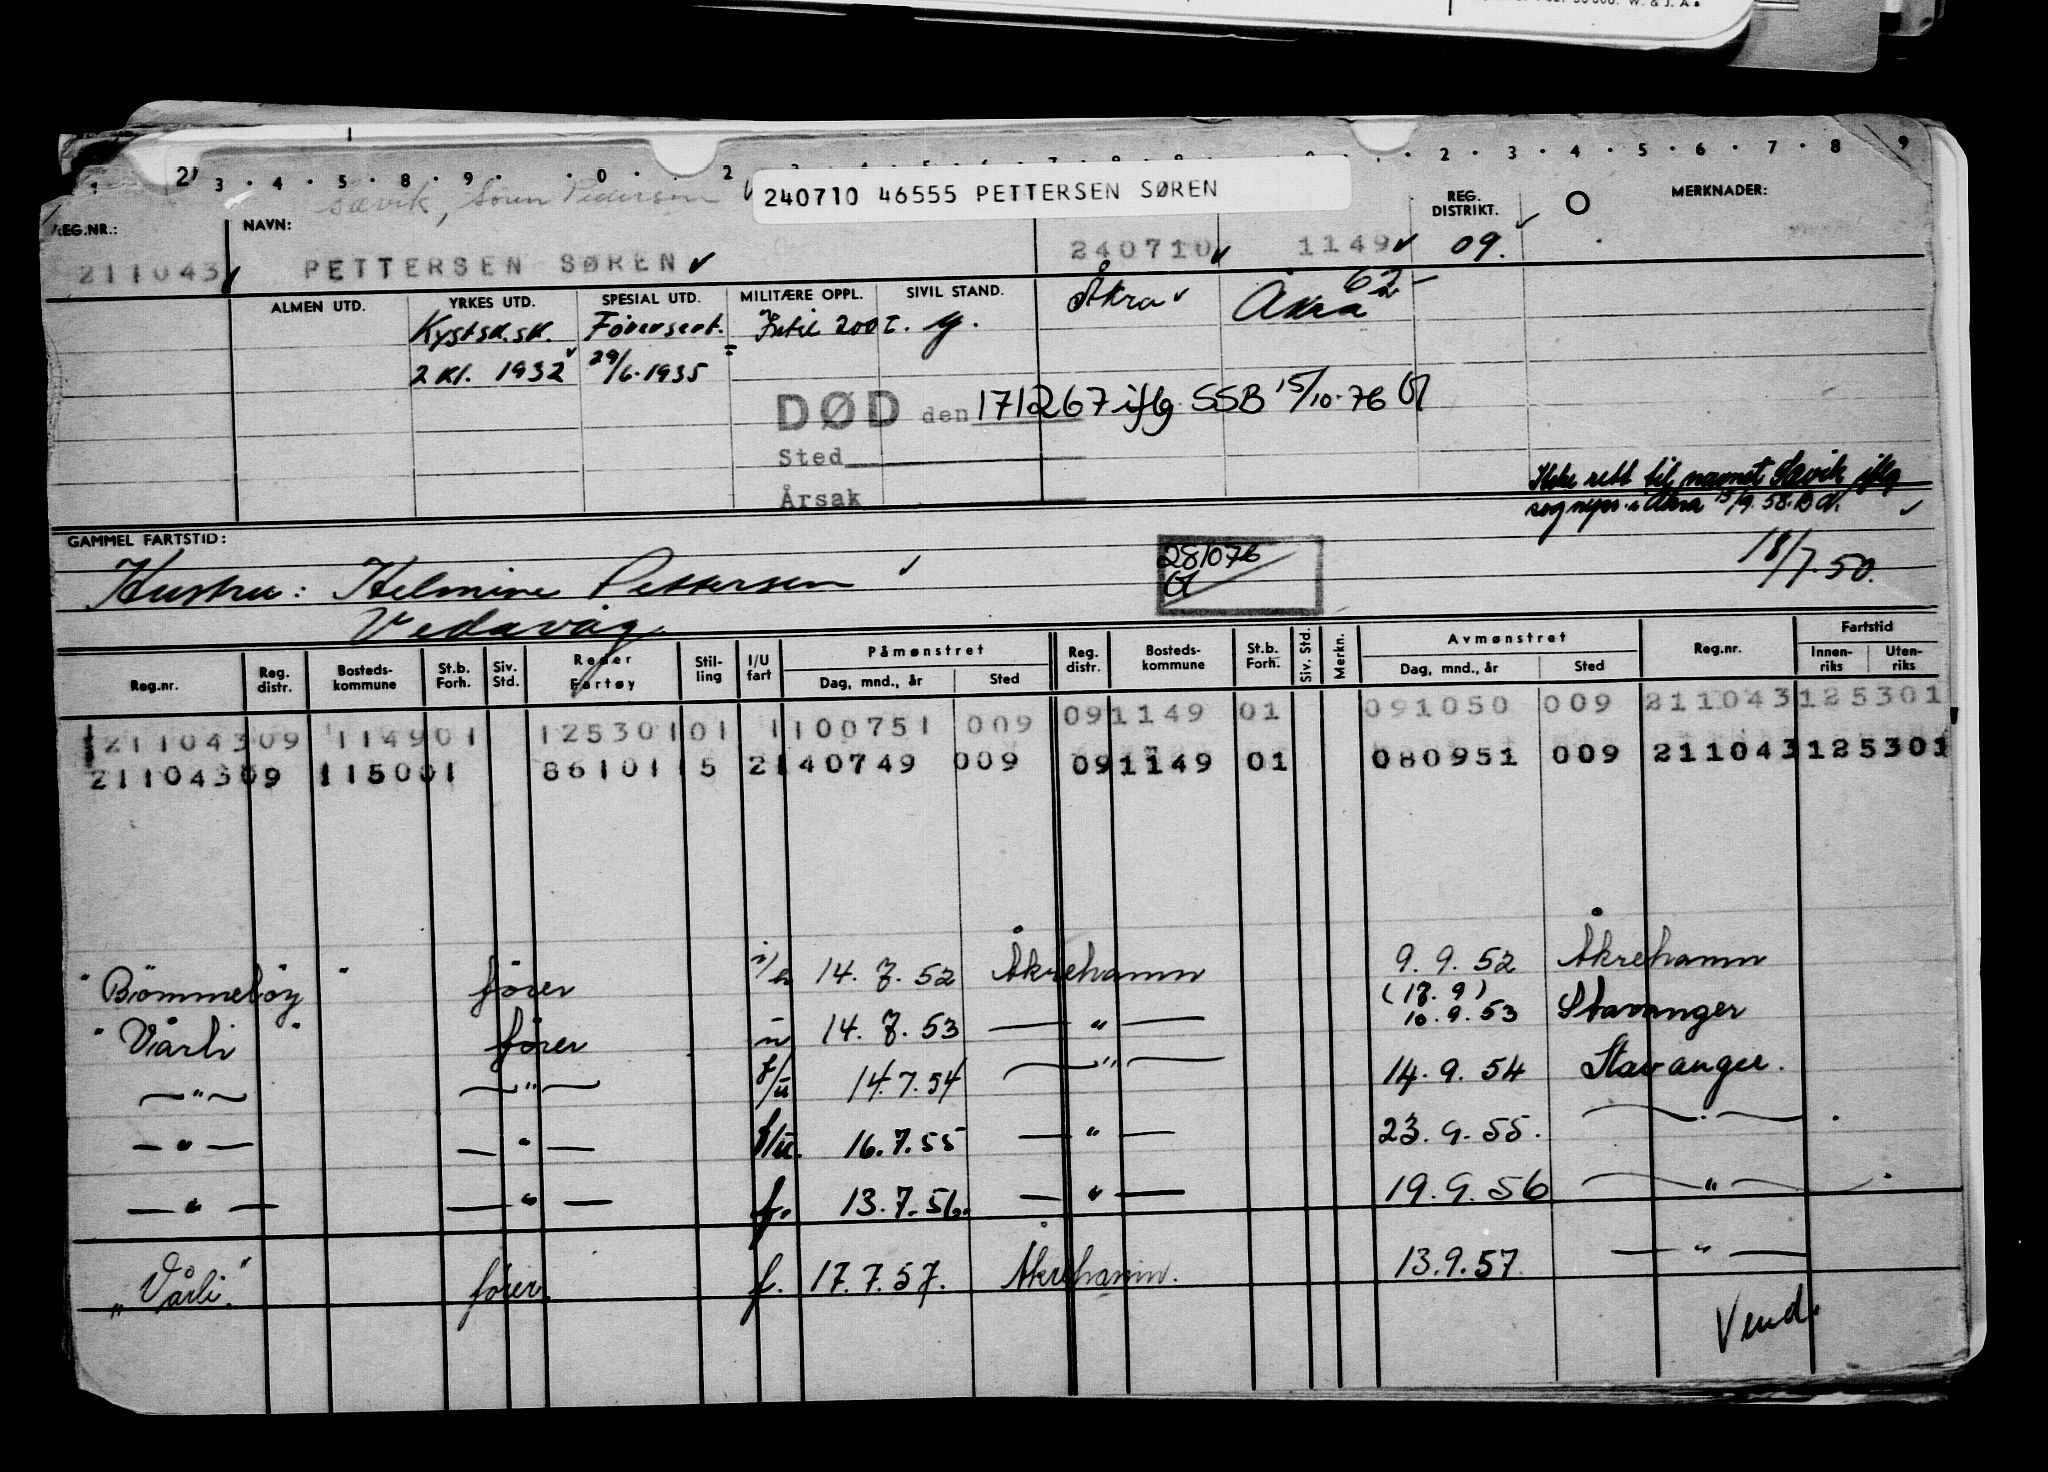 W. & J. A
2 3 · 4 · 5 · 8 · 9 · · 0 · · 2 · 2 · 3 · 4 · 5 · 6 · 7 · 8 9
Sævik, Søren Pedersen
240710 46555 PETTERSEN SØREN
REG. DISTRIKT.
MERKNADER:
EG.NR.:
NAVN:
211043 PETTERSEN SØREN 240710 1149 09.
ALMEN UTD. YRKES UTD. SPESIAL UTD. MILITÆRE OPPL. SIVIL STAND.
Åkra Åkra 62
Kystsk.sk. Førersert. g.
2 kl. 1932 29/6.1935
DØD den 171267 iflg SSB 15/10-76
Sted
Årsak
Ikke rett til navnet Sævik iflg
sognepr. i Åkra 15/9.58.
GAMMEL FARTSTID:
281076
18/7.50.
Hustru: Helmine Pettersen
Vedavåg
Reg.nr. Reg. distr. Bosteds-kommune St.b. Forh. Siv. Std. Reder Fartøy Stil-ling I/U fart Påmønstret Dag, mnd., år Sted Reg. distr. Bosteds-kommune St.b. Forh. Siv. Std. Merkn. Avmønstret Dag, mnd., år Sted Reg.nr. Fartstid Innen-riks Uten-riks
211043 09 1149 01 125301 01 1 100751 009 09 1149 01 091050 009 211043 125301
211043 09 1150 01 86101 15 2 140749 009 09 1149 01 080951 009 211043 125301
"Bömmeløy" fører 14.7.52 Åkrehamn 9.9.52 Åkrehamn
(17.9)
"Vårli" fører u 14.7.53 — " — 10.9.53 Stavanger
— " — — " — f/u 14.7.54 — " — 14.9.54 Stavanger.
— " — — " — f/u. 16.7.55 — " — 23.9.55. — " —
— " — — " — f. 13.7.56. — " — 19.9.56 — " —
"Vårli." fører. f. 17.7.57. Åkrehamn. 13.9.57. — " —
Vend.